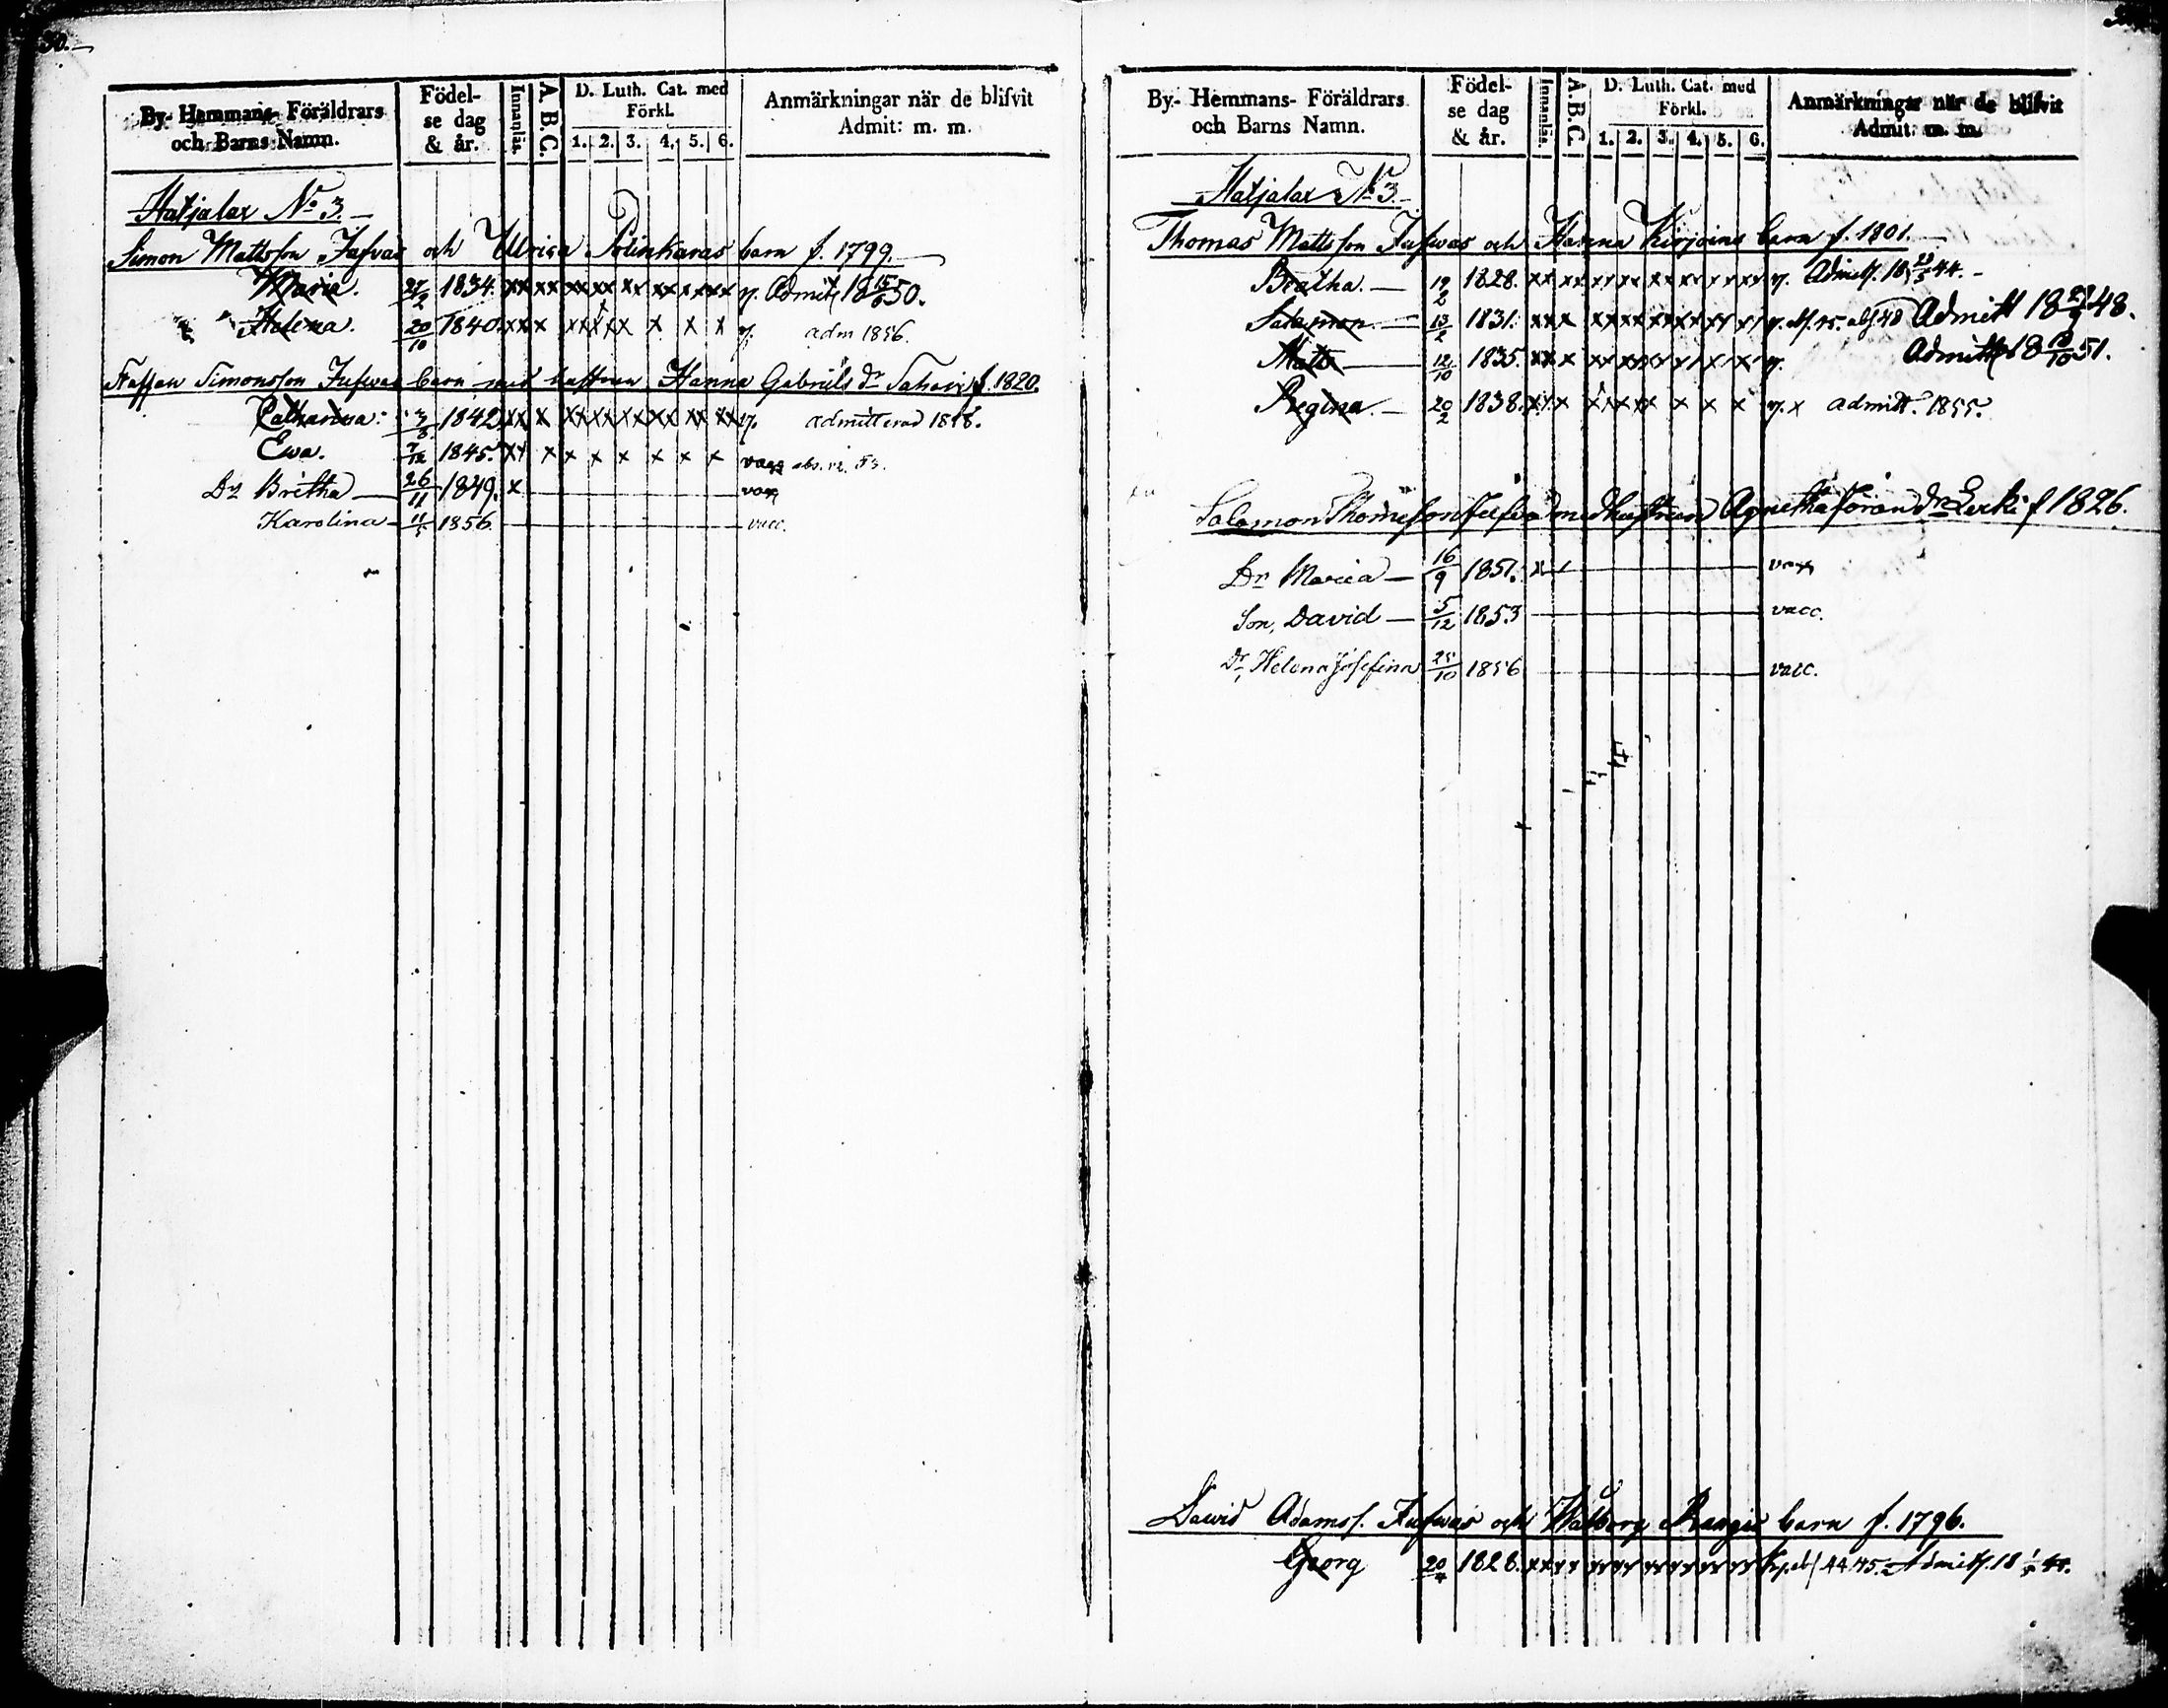 30.
By- Hemmans- Föräldrars och Barns Namn.
Födel-se dag & år.
Innanläs.
A. B. C.
D. Luth. Cat. med Förkl.
1. 2. 3. 4. 5. 6.
Anmärkningar när de blifvit Admit: m. m.
Hatjalax No 3.
Simon Mattsson Jufvas och Ulrica barn f. 1799.
Maria. 27/2 1834. xx xx xx xx xx xx xx xx Admitt 18 15/6 50.
Helena. 20/10 1840. xx x xx xx x x x adm 1856.
Staffan Simonsson Jufvas barn med hustrun Hanna Gabriels dr f. 1820.
Catharina. 1842 xx x xx xx xx xx xx xx admitterad 1858.
Ewa. 7/12 1845. xx x x x x x x x vacc abs. 53.
Dr Britha 26/11 1849. x vac
Karolina 11/5 1856 vacc.
By- Hemmans- Föräldrars och Barns Namn.
Födel-se dag & år.
Innanläs.
A. B. C.
D. Luth. Cat. med Förkl.
1. 2. 3. 4. 5. 6.
Anmärkningar när de blifvit Admit: m. m.
Hatjalax No 3.
Thomas Mattsson Jufvas och Hanna barn f. 1801.
Beatha. 1828. xx xx xx xx xx xx xx xx Admitt. 44.
Salomon 13/2 1831. xx x xx xx xx xx xx xx Admitt 48.
Matts 12/10 1835. xx x xx xx xx xx x x Admitt 51.
Regina. 20/2 1838. xx x x xx xx x x x x admitt. 1855.
Salomon Thomesson Jufvas med hustrun Agnetha Göran dr f 1826.
Dr Maria 16/9 1851. x vac
Son, David 5/12 1853 vacc.
Dr, Helena Josefina 25/10 1856 vacc.
David Adamss. Jufvas och Walborg barn f. 1796.
Georg 1828. xx xx xx xx xx xx xx xx abs 44.45. Admitt. 18